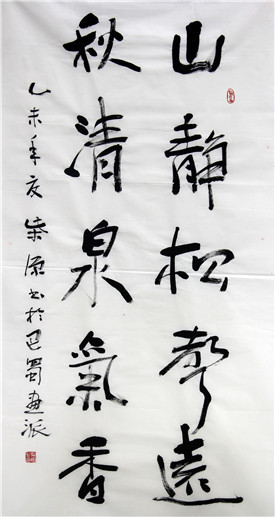 山靜松聲遠
秋清泉氣香
乙未年夏 柴源书於巴蜀画派